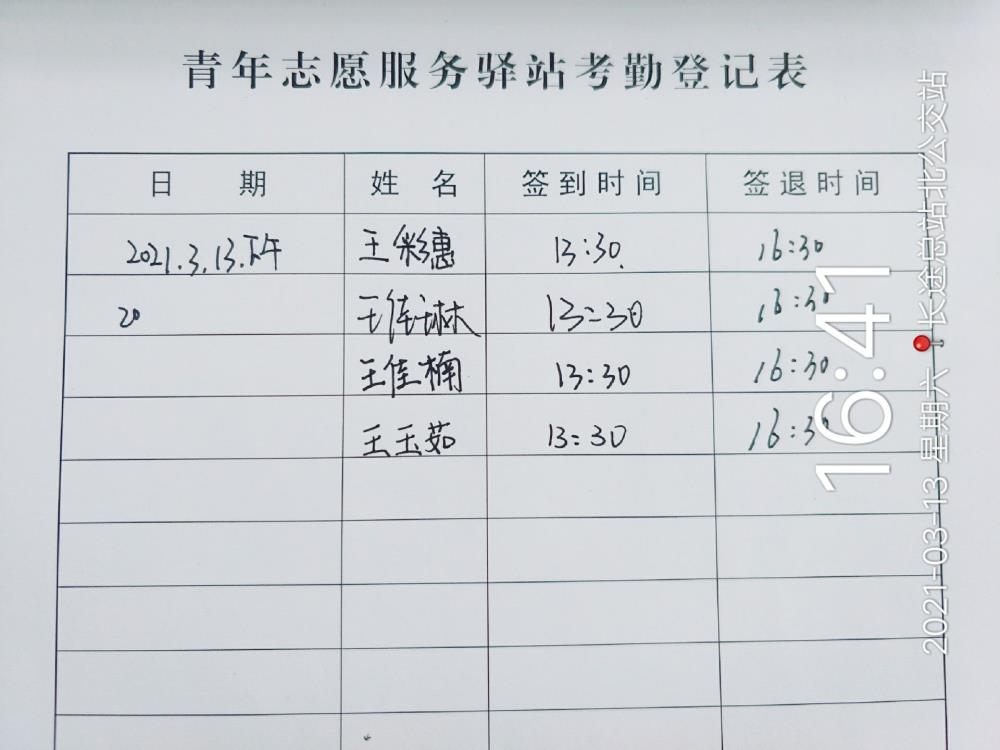 青年志愿服务驿站考勤登记表
日 期 姓 名 签到时间 签退时间
2021.3.13.下午 王彩惠 13:30 16:30
20 王佳琳 13:30 16:30
王佳楠 13:30 16:30
王玉茹 13:30 16:30
16:41
2021-03-13 星期六 长途总站北公交站